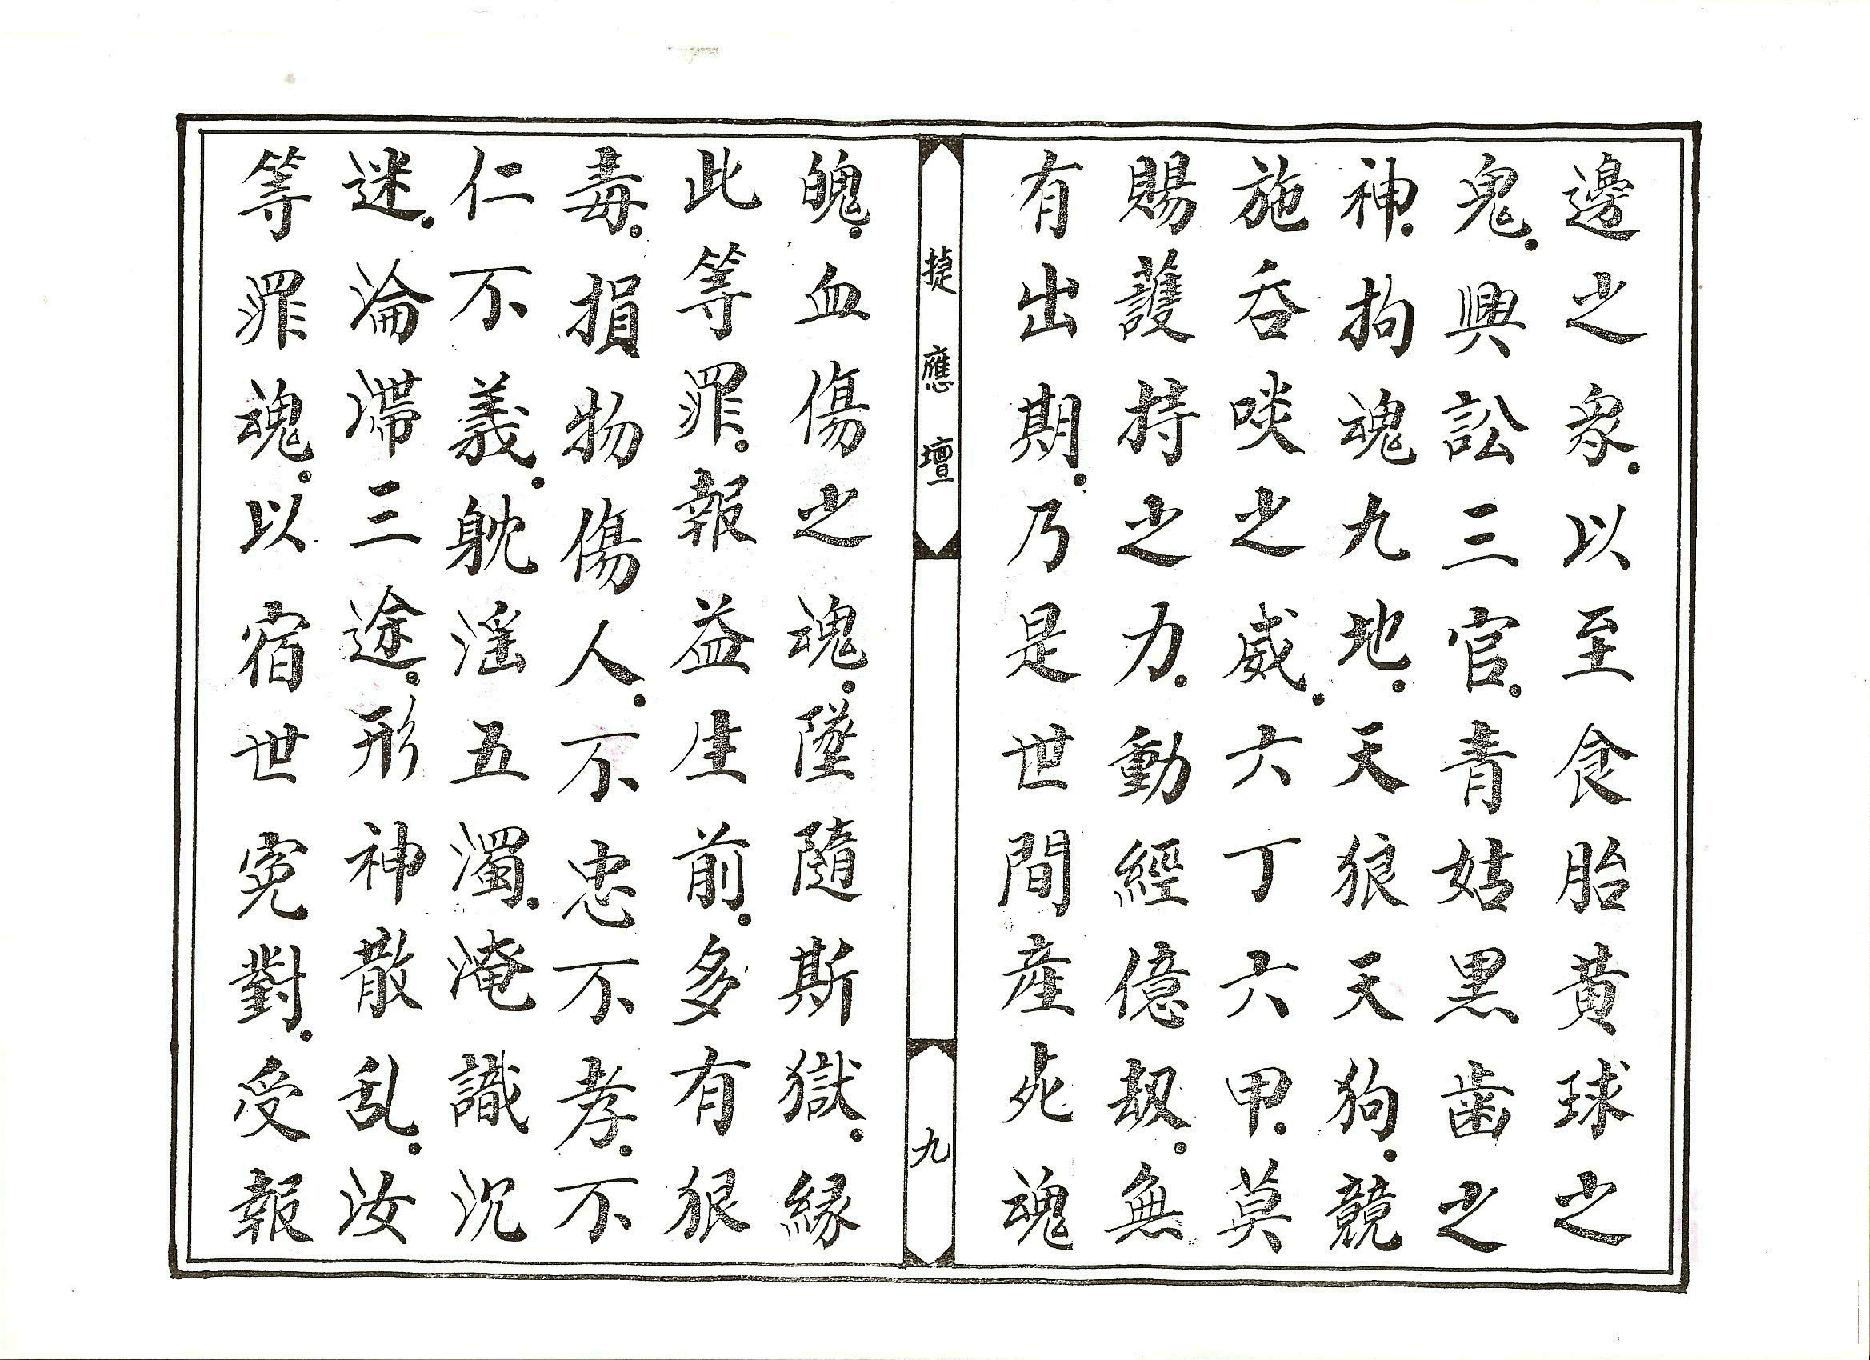 邊之象。以至食胎黃球之
鬼。興訟三官。青姑黑齒之
神。拘魂九地。天狼天狗。競
施吞啖之威。六丁六甲。莫
賜護持之力。動經億劫。無
有出期。乃是世間產死魂
捷應壇
九
魄。血傷之魂。墜隨斯獄。緣
此等罪。報益生前。多有狠
毒。損物傷人。不忠不孝。不
仁不義。躭滛五濁。淹識沉
迷。淪滯三途。形神散乱。汝
等罪魂。以宿世寃對。受報